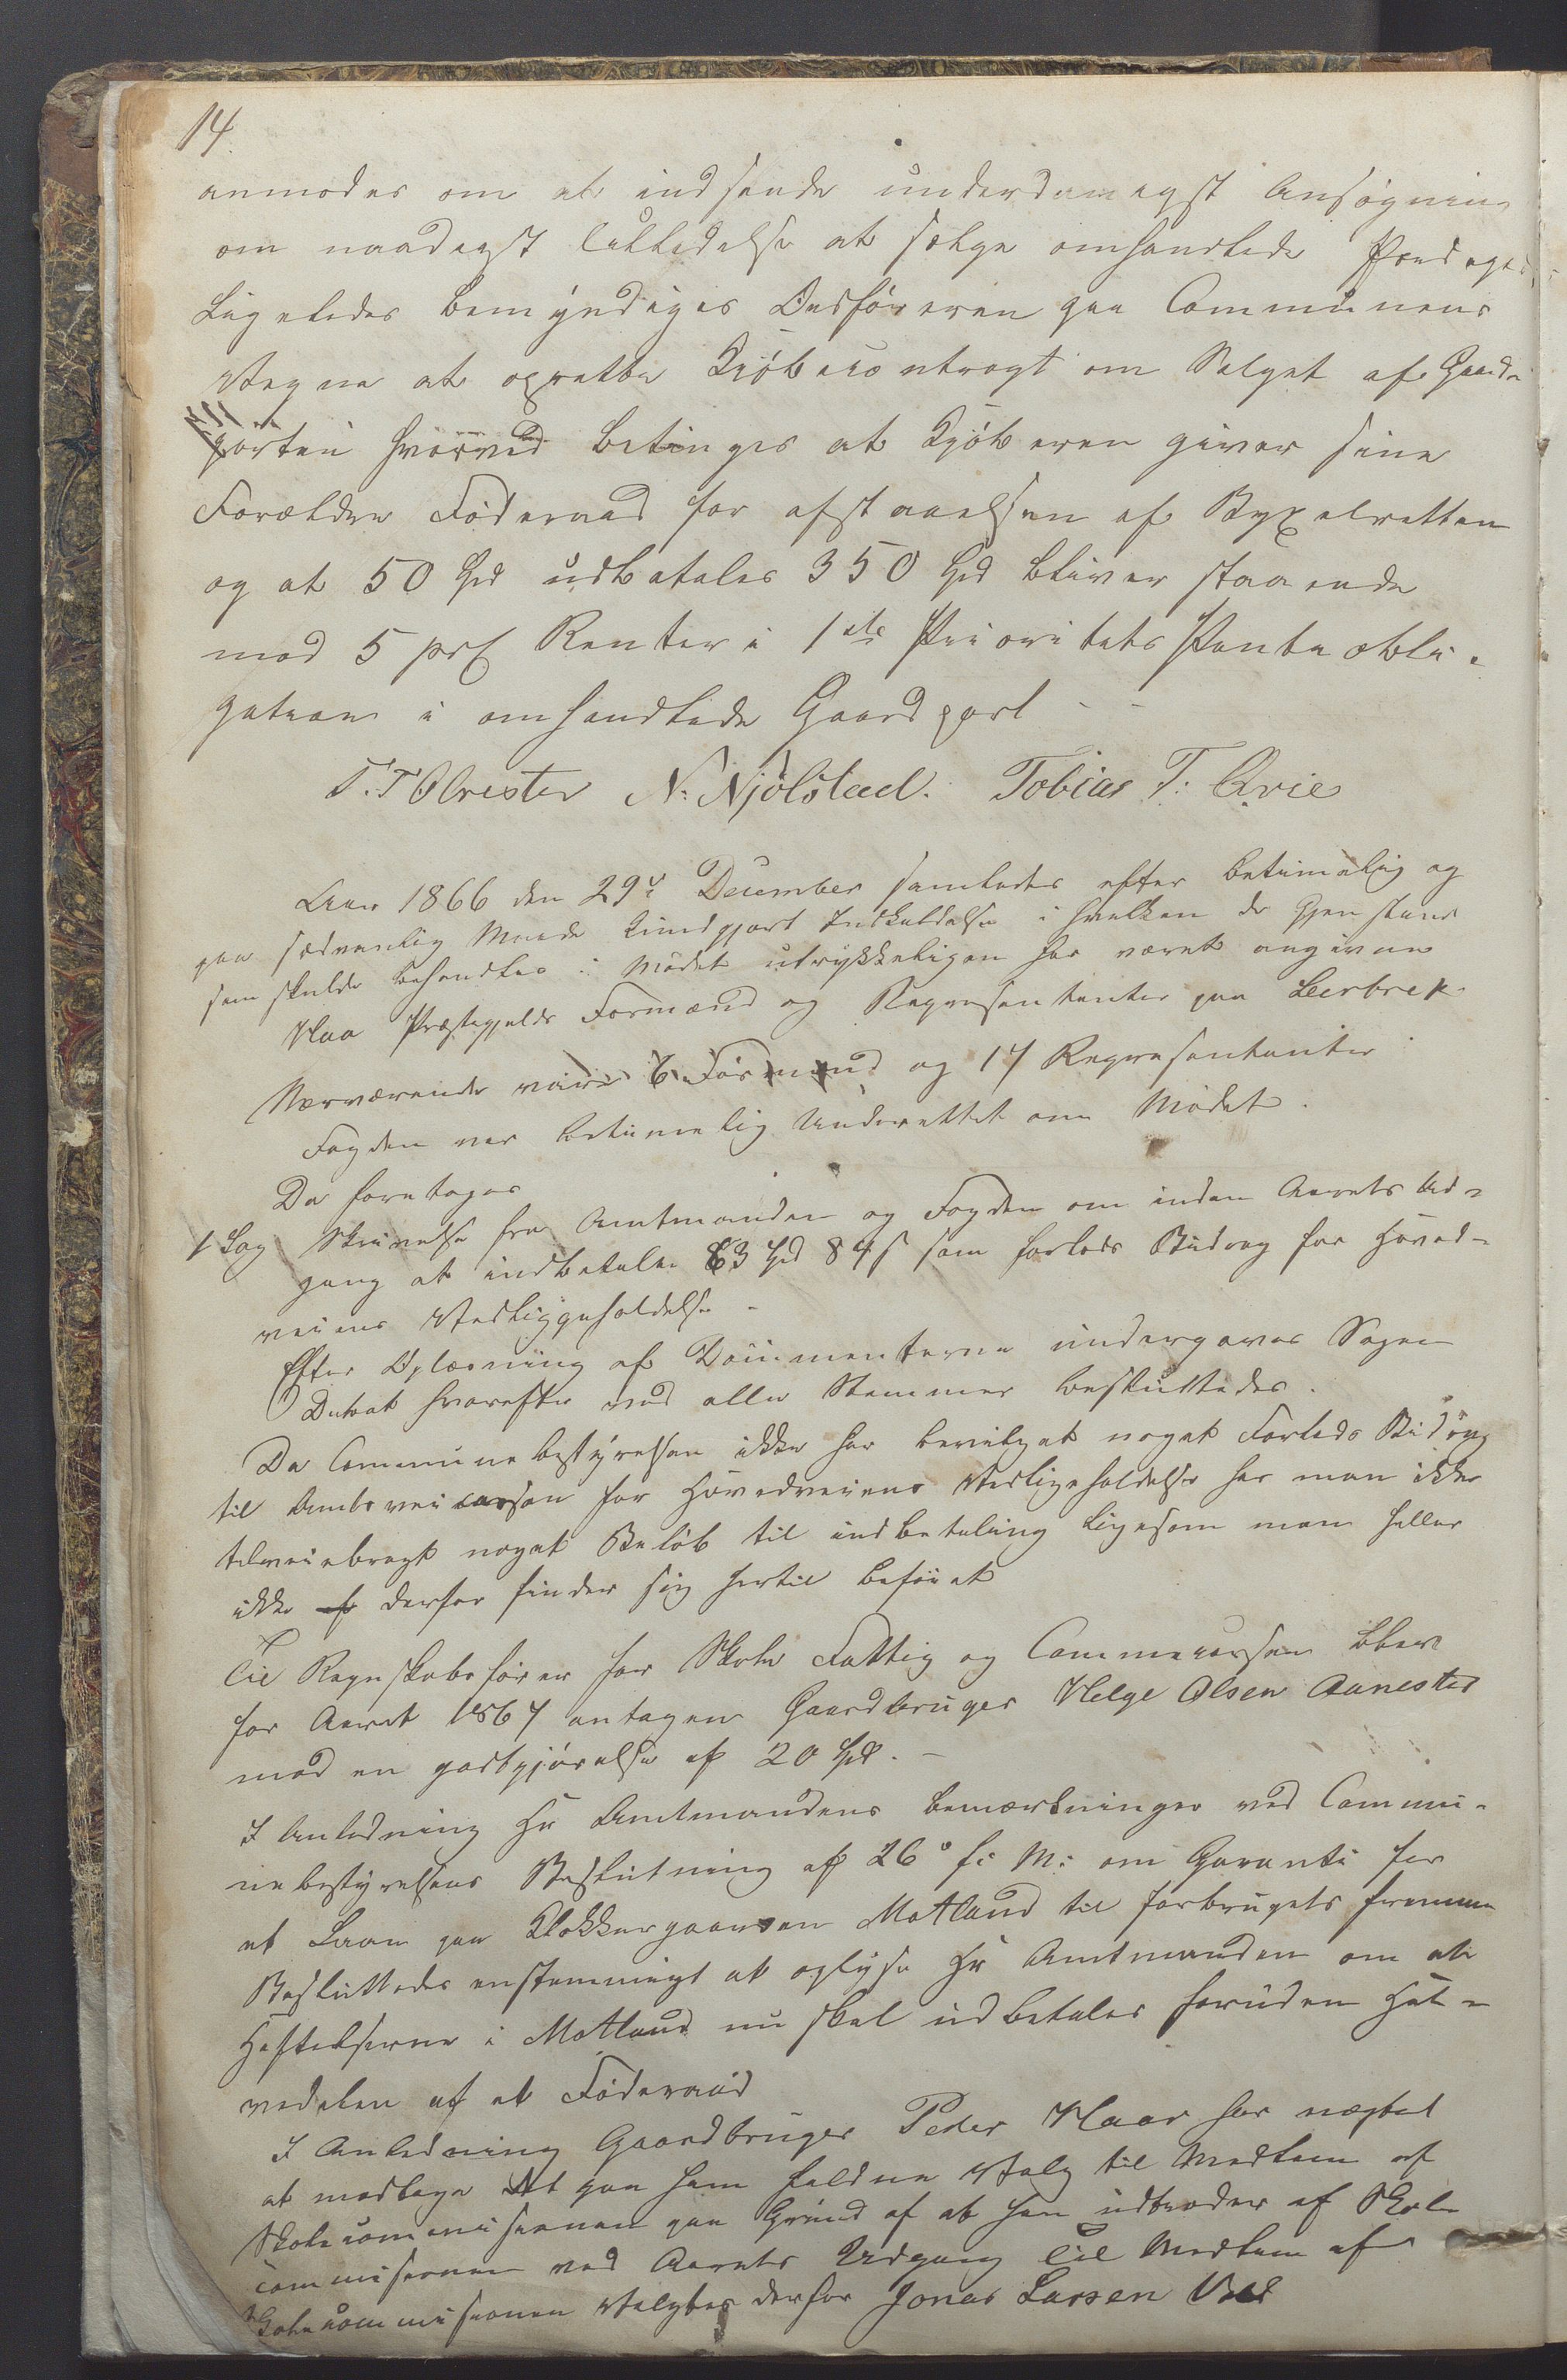 14
anmodes om at indsende underdanigst Ansøgning
om naadigst Tilladelse at sælge omhandlede
Ligeledes bemyndiges Ordføreren paa Communens
Vegne at oprette Kjøbecontragt om Salget af Gaard-
parten hvorved betinges at Kjøberen giver sine
Forældre Føderaad for afstaaelsen af Bygselretten
og at 50 Spd udbetales 350 Spd bliver staaende
mod 5 pct Renter i 1ste Prioritets Panteobli-
gation i omhandlede Gaardpart -
T. T Obrestad N. Njølstad. Tobias T. Qvie
Aar 1866 den 29de December samledes efter betimelig og
paa sædvanlig Maade Kundgjort Indkaldelse i hvilken de Gjenstande
som skulde behandles i Mødet udtrykkeligen har været angivne
Haa Præstegjelds Formænd og Representanter paa Leerbrek
Nærværende vare 6 Formænd og 17 Representanter
Fogden var betimelig Underrettet om Mødet.
Da foretoges
1 Sag Skrivelse fra Amtmanden og Fogden om inden Aarets Ud-
gang at indbetale 83 Spd 84 s som forlods Bidrag for Hoved-
veiens Vedligeholdelse -
Efter Oplæsning af Documenterne undergaves Sagen
Debat hvorefter med alle Stemmer besluttedes.
Da Communebestyrelsen ikke har bevilget noget Forlods Bidrag
til Amtsveicassen for Hovedveiens Vedligeholdelse har man ikke
tilveiebragt noget Beløb til indbetaling ligesom man heller
ikke derfor finder sig hertil beføiet
Til Regnskabsfører for Skole Fattig og Communecassen blev
for Aaret 1867 antagen Gaardbruger Helge Olsen Aanestad
mod en godtgjørelse af 20 Spd. -
I Anledning Hr Amtmandens bemærkninger ved Commu-
nebestyrelsens Beslutning af 26de f: M: om Garanti for
et Laan paa Klokkergaarden Motland til forbrugets fremme
Besluttedes enstemmigt at oplyse Hr Amtmanden om at
Heftelserne i Motland nu skal udbetales foruden Hal-
vedelen af et Føderaad
I Anledning Gaardbruger Peder Haar har nægtet
at modtage det paa ham faldne Valg til Medlem af
Skolecommissionen paa Grund af at han udtræder af Skole
commissionen ved Aarets Udgang Til Medlem af
Skolecommissionen valgtes derfor Jonas Larsen